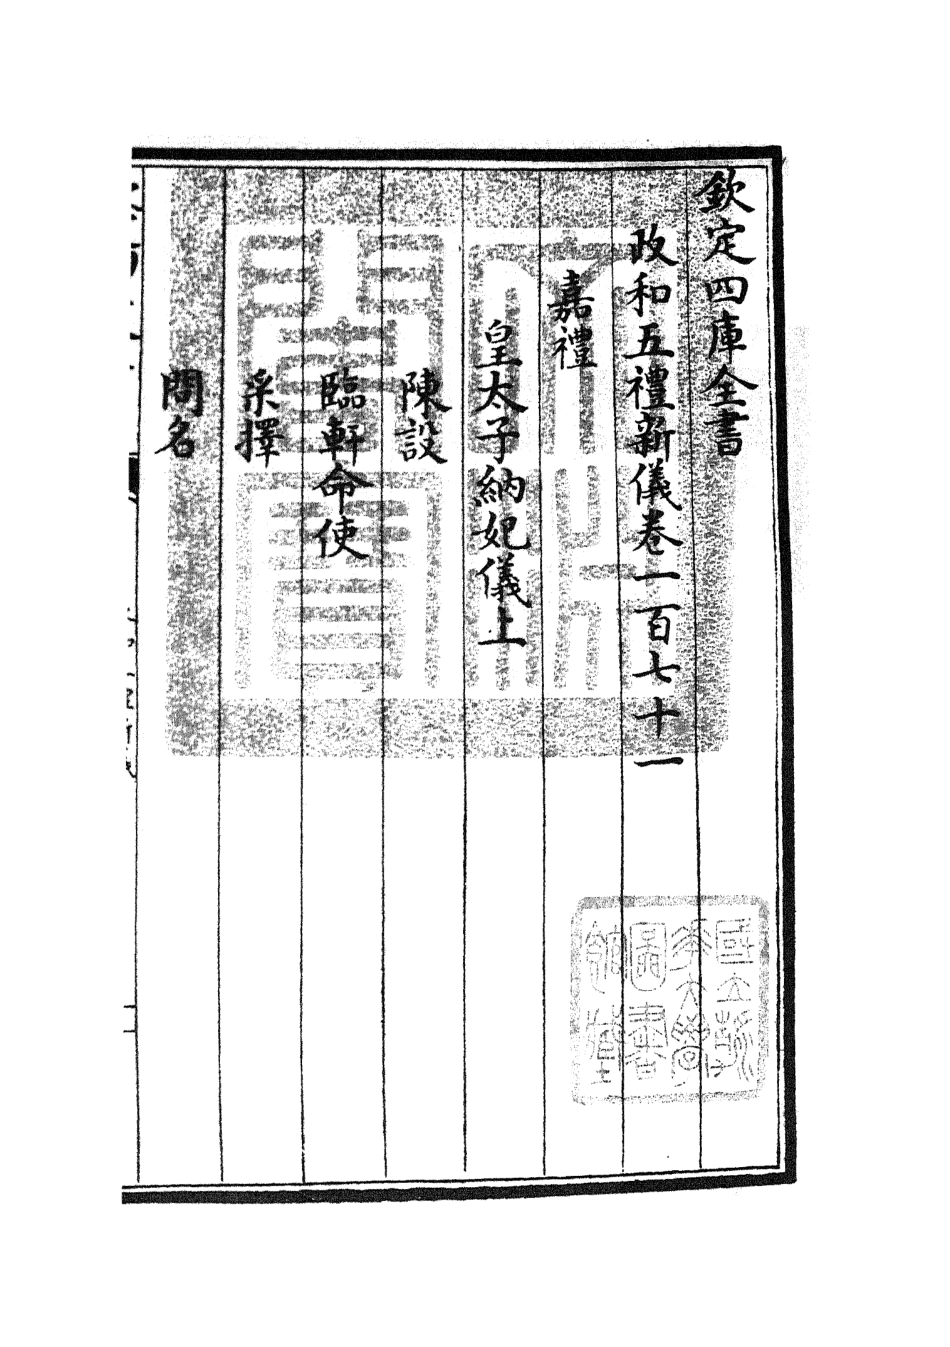 欽定四庫全書
政和五禮新儀卷一百七十一
嘉禮
皇太子納妃儀上
陳設
臨軒命使
采擇
問名